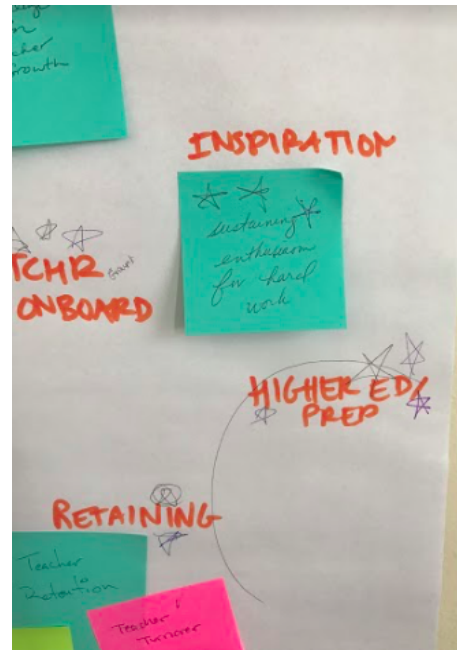 cher
Growth
INSPIRATION
sustaining
enthusiasm
for hard
work
TCHR
ONBOARD
HIGHER ED/
PREP
RETAINING
Teacher
Retention
Teacher
Turnover